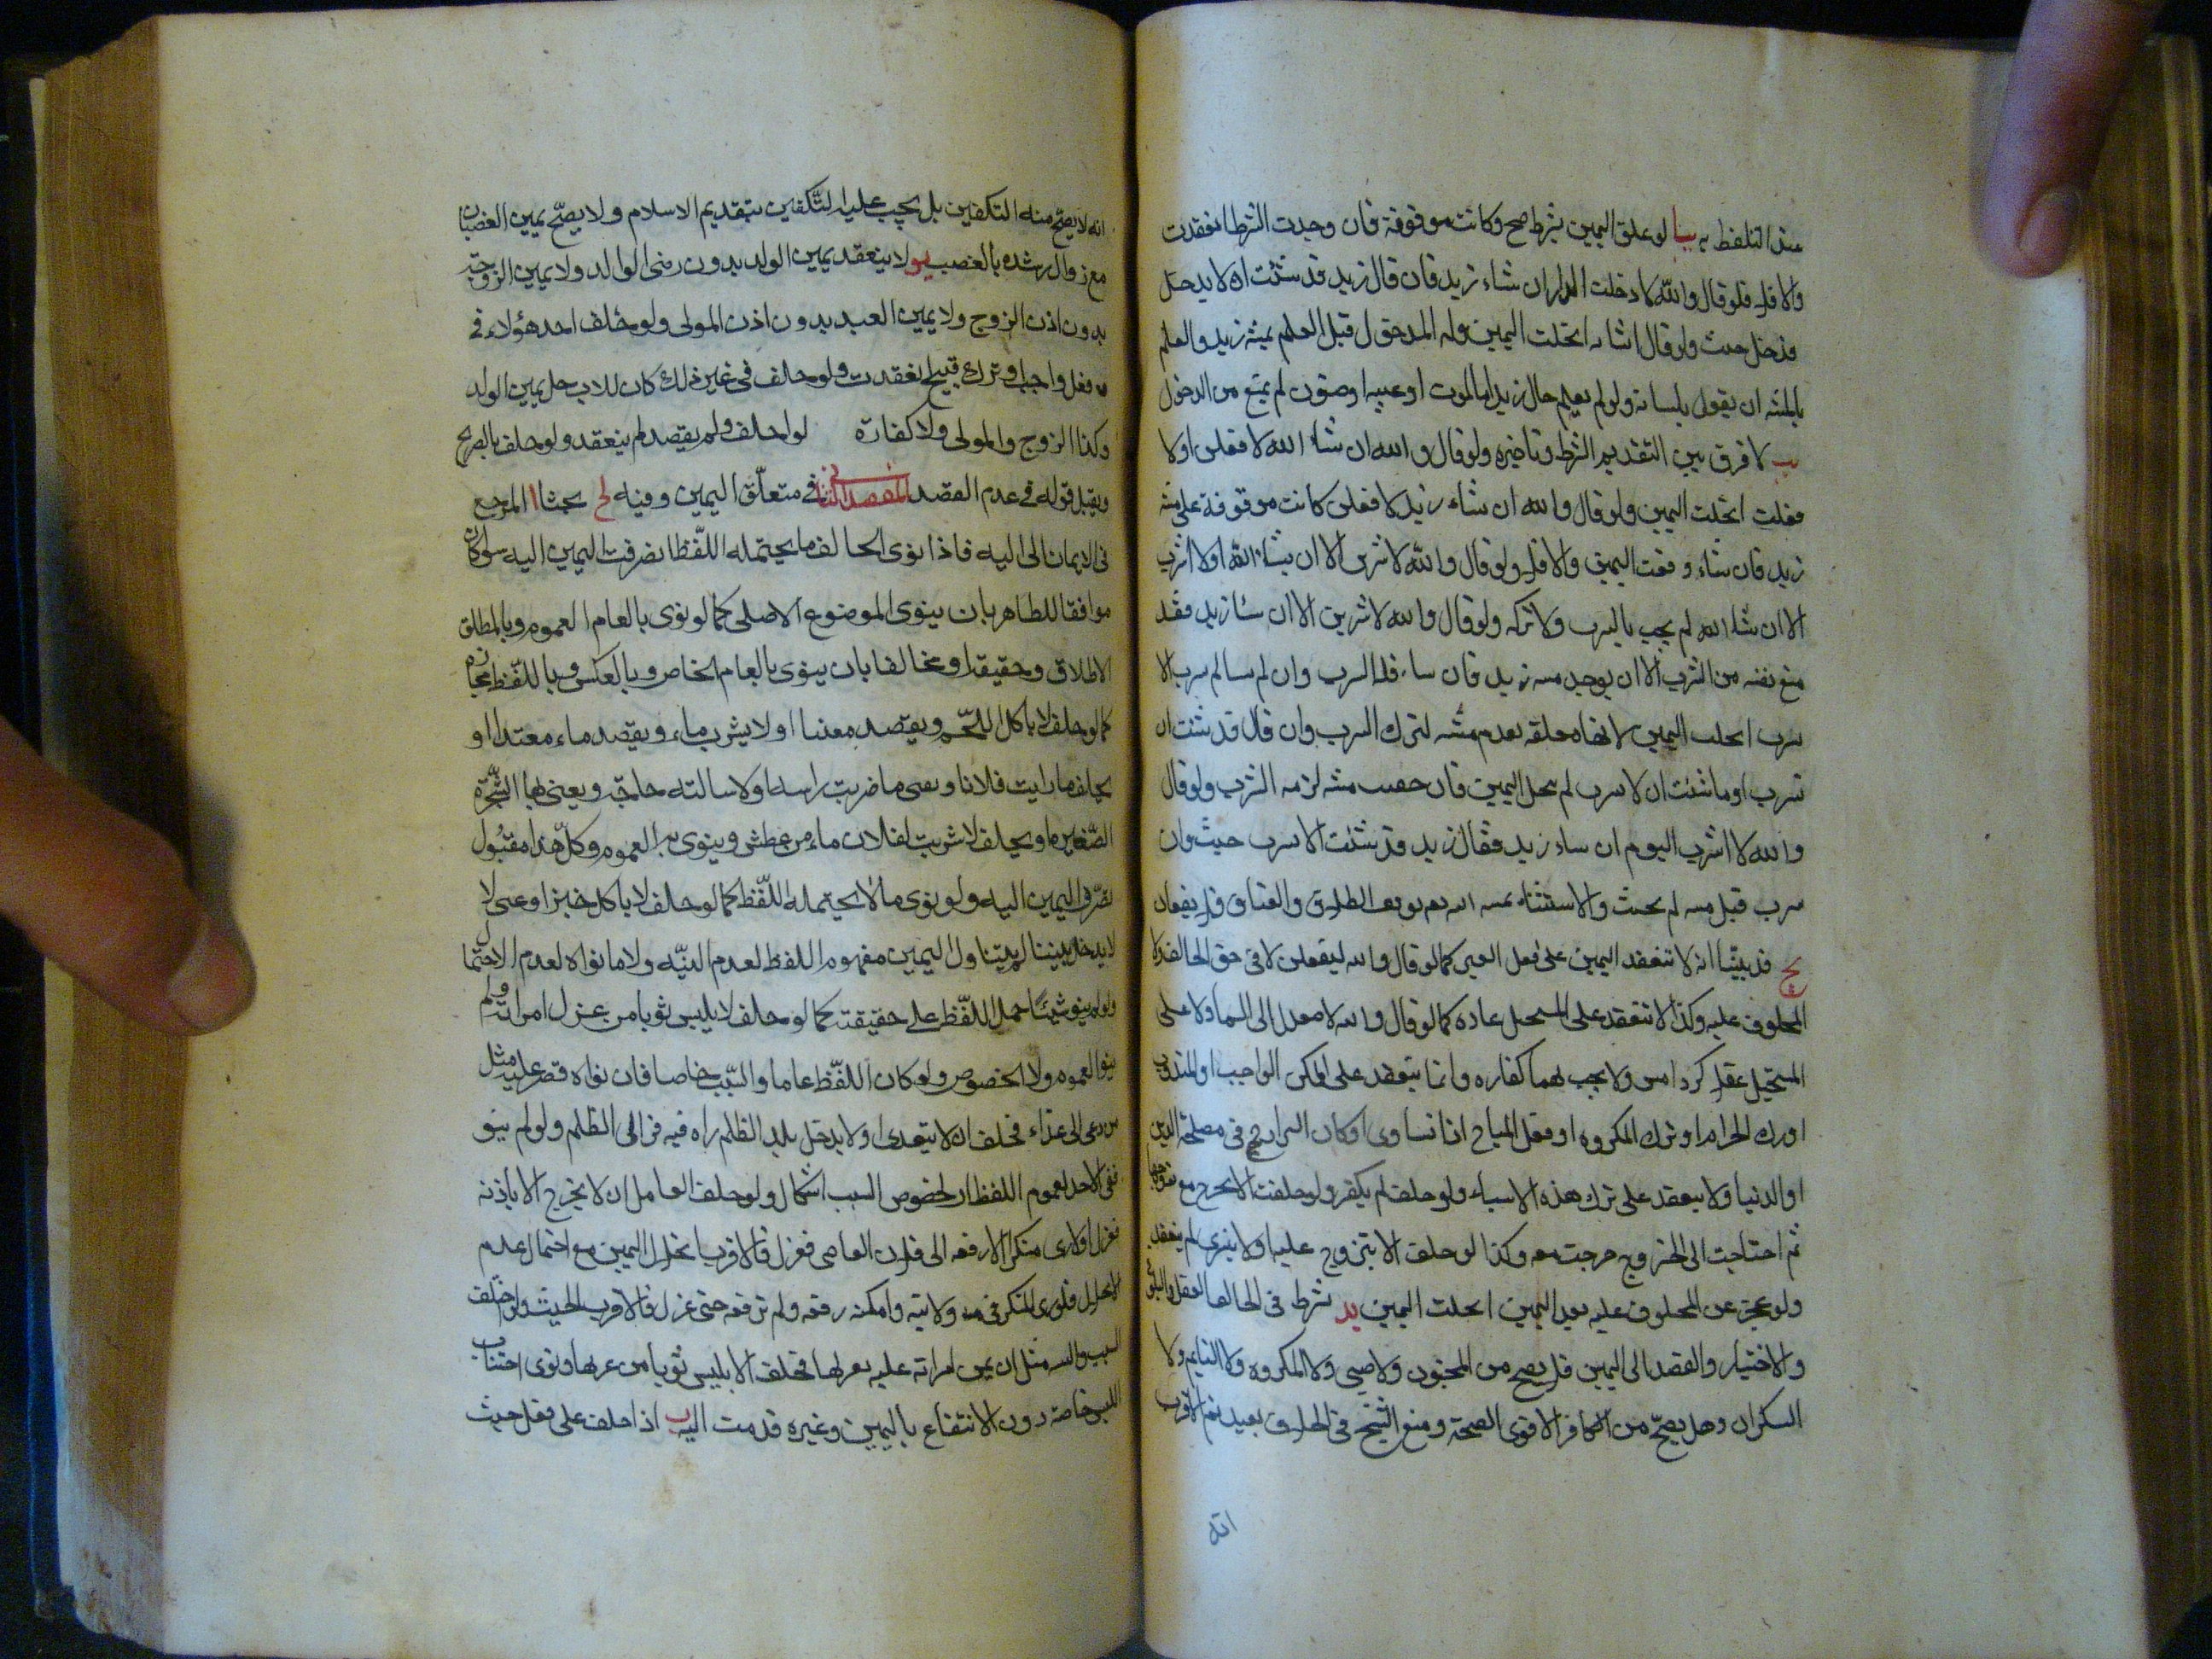 عند التلفظ به يا لو علق اليمين بشرط صح وكانت موقوفة فان وجدت الشرط انعقدت
والا فلا فلو قال والله لا دخلت الدار ان شاء زيد فان قال زيد قد شئت ان لا يدخل
فدخل حنث ولو قال انشا انحلت اليمين وله الدخول قبل العلم بمشية زيد والعلم
بالمشية ان يقول بلسانه ولو لم يعلم حال زيد اما لموت او غيبة او لم يمنع من الدخول
يب لا فرق بين التقديم الشرط وتاخيره ولو قال والله ان شاء الله لا فعلن اولا
فعلت انحلت اليمين ولو قال والله ان شاء زيد لا فعلن كانت موقوفة على مشية
زيد فان شاء وقعت اليمين والا فلا ولو قال والله لا شربن الا ان يشاء الله اولا اشرب
الا ان يشاء الله لم يجب بالشرب ولا تركه ولو قال والله لا شربن الا ان يشا زيد فقد
منع نفسه من الشرب الا ان يوجد مشية زيد فان شاء فله الشرب وان لم يشا لم يشرب
شرب انحلت اليمين لانها معلقة بعدم مشية لترك الشرب وان قال قد شئت ان
تشرب او ما شئت ان لا تشرب لم تنحل اليمين فان خفيت مشية لزمه الشرب ولو قال
والله لا اشرب اليوم ان شاء زيد فقال زيد قد شئت الا تشرب حنث وان
شرب قبل مشية لم يحنث والاستثناء بمشية الله بوقف الطلاق والعتاق فلا يقعان
يج قد بينا انه لا تنعقد اليمين على فعل الغير كما لو قال والله ليفعلن لا في حق الحالف ولا
المحلوف عليه وكذا لا تنعقد على المستحيل عادة كما لو قال والله لا صعدن الى السما ولا على
المستحيل عقلا كرد امس ولا يجب لهما كفارة وانما ينعقد على الواجب او المندوب
او ترك الحرام او ترك المكروه او فعل المباح اذا تساوى او كان الراجح في مصلحة الدين
او الدنيا ولا ينعقد على ترك هذه الاشياء ولو حلف لم يكفر ولو حلفت الا تخرج مع زوجها
ثم احتاجت الى الخروج خرجت معه وكذا لو حلف الا يتزوج عليها ولا يتسرى لم ينعقد
ولو عجز عن المحلوف عليه بعد اليمين انحلت اليمين يد شرط في الحالف العقل والبلوغ
والاختيار والقصد الى اليمين فلا يصح من المجنون ولا صبي ولا المكروه ولا النايم ولا
السكران وهل يصح من الكافر الاقوى الصحة ومنع الشيخ في الخلاف بعيد نعم الاقرب
انه
انه لا يصح منه التكفير بل يجب عليه التكفير بتقديم الاسلام ولا يصح يمين الغضبان
مع زوال رشده بالغضب يو لا ينعقد يمين الولد بدون رضى الوالد ولا يمين الزوجة
بدون اذن الزوج ولا يمين العبد بدون اذن المولى ولو حلف احد هؤلاء في
فعل واجب او ترك قبيح انعقدت ولو حلف في غير ذلك كان للاب حل يمين الولد
وكذا الزوج والمولى ولا كفارة لو احلف ولم يقصد لم ينعقد ولو حلف بالصريح
ويقبل قوله في عدم القصد المقصد الثاني في متعلق اليمين وفيه لح بحثا ا المرجع
في الايمان الى النية فاذا نوى الحالف ما يحتمله اللفظ انصرفت اليمين اليه سواء كان
موافقا للظاهر بان ينوى الموضوع الاصلى كما لو نوى بالعام العموم وبالمطلق
الاطلاق وحقيقة او مخالفا بان ينوى بالعام الخاص وبالعكس وباللفظ مجازه
كما لو حلف لا ياكل اللحم ويقصد معينا او لا يشرب ماء ويقصد ماء معتدا او
يحلف ما رايت فلانا ويعنى ما ضربت راسه او لا سالته حاجة ويعنى بها الشجرة
الصغيرة او يحلف لا شربت لفلان ماء من عطش وينوى به العموم وكل هذا مقبول
تصرف اليمين اليه ولو نوى ما لا يحتمله اللفظ كما لو حلف لا ياكل خبزا وعنى لا
لا يدخل بيتا لم يتناول اليمين مفهوم اللفظ لعدم النية ولا ما نواه لعدم الاحتمال
ولو لم ينو شيئا حمل اللفظ على حقيقته كما لو حلف لا يلبس ثوبا من غزل امراته ولم
ينو العموم ولا الخصوص ولو كان اللفظ عاما والسبب خاصا فان نواه قصر عليه مثل
من دعى الى غذاء فحلف ان لا يتغدى او لا يدخل بلدا لظلم راه فيه فزال الظلم ولو لم ينو
ففى الاخذ لعموم اللفظ او لخصوص السبب اشكال ولو حلف العامل ان لا يخرج الا باذنه
فعزل او لا رى منكرا الا رفعه الى فلان القاضى فعزل فالاقرب انحلال اليمين مع احتمال عدم
الانحلال فلو رى المنكر في ولايته وامكنه رفعه ولم يرفعه حتى عزل فالاقرب الحنث ولو اختلف
السبب والنية مثل ان يمن امراته عليه بغزلها فحلف الا يلبس ثوبا من غزلها ونوى اجتناب
اللبس خاصة دون الانتفاع بالثمن وغيره قدمت النية ب اذا حلف على فعل حنث